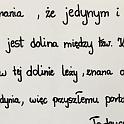 naria, że jedynym i
jest dolina między tzw. K
w tej dolinie leży, znana o
dynia, więc przyszłemu port